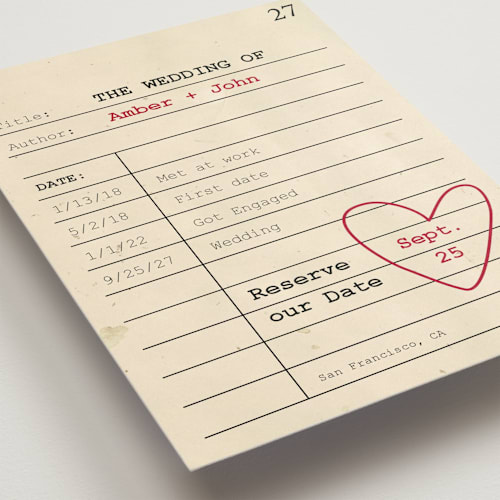 27
Title: THE WEDDING OF
Author: Amber + John
DATE:
1/13/18 Met at work
5/2/18 First date
1/1/22 Got Engaged
9/25/27 Wedding
Reserve
our Date
Sept.
25
San Francisco, CA